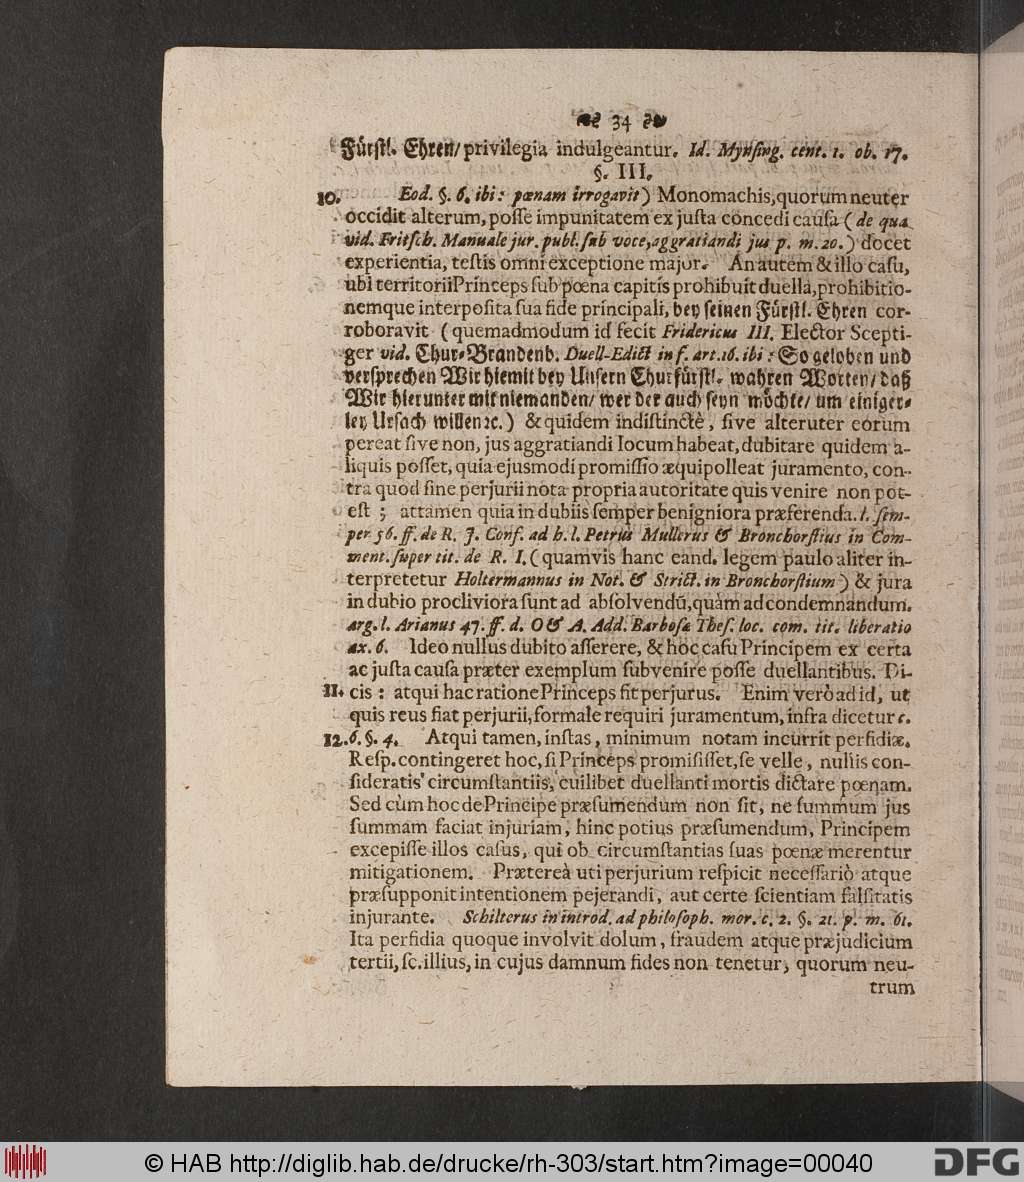 34
Fürstl. Ehren/ privilegia indulgeantur. Id. Mynsing. cent. 1. ob. 17.
§. III.
10. Eod. §. 6. ibi: pœnam irrogavit) Monomachis, quorum neuter
occidit alterum, posse impunitatem ex justa concedi causa (de qua
vid. Fritsch. Manuale jur. publ. sub voce, aggratiandi jus p. m. 20.) docet
experientia, testis omni exceptione major. An autem & illo casu,
ubi territorii Princeps sub pœna capitis prohibuit duella, prohibitio-
nemque interposita sua fide principali, bey seinen Fürstl. Ehren cor-
roboravit (quemadmodum id fecit Fridericus III. Elector Scepti-
ger vid. Chur-Brandenb. Duell-Edict in f. art. 16. ibi: So geloben und
versprechen Wir hiemit bey Unsern Churfürstl. wahren Worten/ daß
Wir hierunter mit niemanden/ wer der auch seyn möchte/ um einiger-
ley Ursach willen ꝛc.) & quidem indistinctè, sive alteruter eorum
pereat sive non, jus aggratiandi locum habeat, dubitare quidem a-
liquis posset, quia ejusmodi promissio æquipolleat juramento, con-
tra quod sine perjurii nota propria autoritate quis venire non pot-
est; attamen quia in dubiis semper benigniora præferenda. l. sem-
per 56. ff. de R. J. Conf. ad h. l. Petrus Mullerus & Bronchorstius in Com-
ment. super tit. de R. I. (quamvis hanc eand. legem paulo aliter in-
terpretetur Holtermannus in Not. & Strict. in Bronchorstium) & jura
in dubio procliviora sunt ad absolvendū, quàm ad condemnandum.
arg. l. Arianus 47. ff. d. O & A. Add. Barbosa Thes. loc. com. tit. liberatio
ax. 6. Ideo nullus dubito asserere, & hoc casu Principem ex certa
ac justa causa præter exemplum subvenire posse duellantibus. Di-
11. cis: atqui hac ratione Princeps fit perjurus. Enim verò ad id, ut
quis reus fiat perjurii, formale requiri juramentum, infra dicetur c.
12. 6. §. 4. Atqui tamen, instas, minimum notam incurrit perfidiæ.
Resp. contingeret hoc, si Princeps promisisset, se velle, nullis con-
sideratis circumstantiis, cuilibet duellanti mortis dictare pœnam.
Sed cùm hoc de Principe præsumendum non sit, ne summum jus
summam faciat injuriam, hinc potius præsumendum, Principem
excepisse illos casus, qui ob circumstantias suas pœnæ merentur
mitigationem. Prætereà uti perjurium respicit necessariò atque
præsupponit intentionem pejerandi, aut certe scientiam falsitatis
injurante. Schilterus in introd. ad philosoph. mor. c. 2. §. 21. p. m. 61.
Ita perfidia quoque involvit dolum, fraudem atque præjudicium
tertii, sc. illius, in cujus damnum fides non tenetur, quorum neu-
trum
© HAB http://diglib.hab.de/drucke/rh-303/start.htm?image=00040
DFG